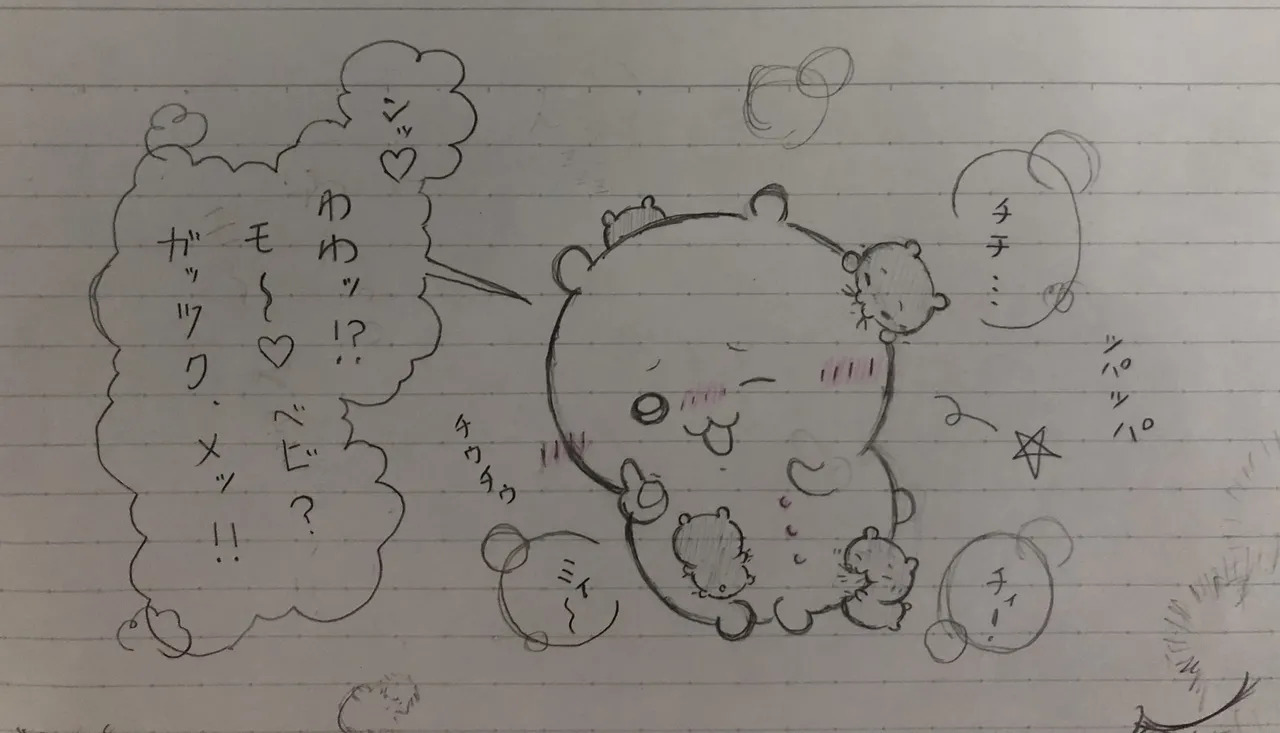 シッ♡
わわッ!?
モ〜♡ベビ?
ガッツク.メッ!!
チテ...
ツパツパ
チウチウ
ミィ〜
チィー.